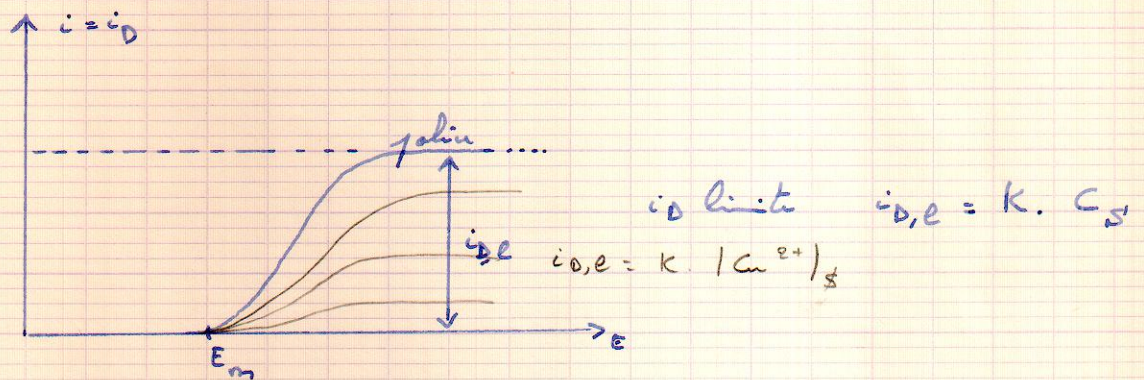 i = i_D
palier
i_D limite i_D,l = K. C_S
i_D,l i_D,l = K. |Cu²⁺|_S
E
E_m